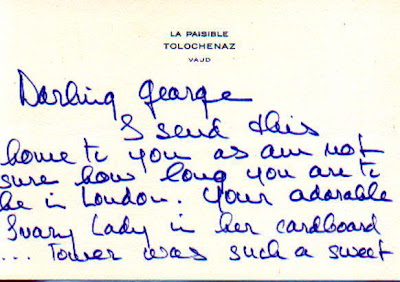 LA PAISIBLE
TOLOCHENAZ
VAUD
Darling George
I send this
home to you as am not
sure how long you are to
be in London. Your adorable
Ivory Lady in her cardboard
... Tower was such a sweet